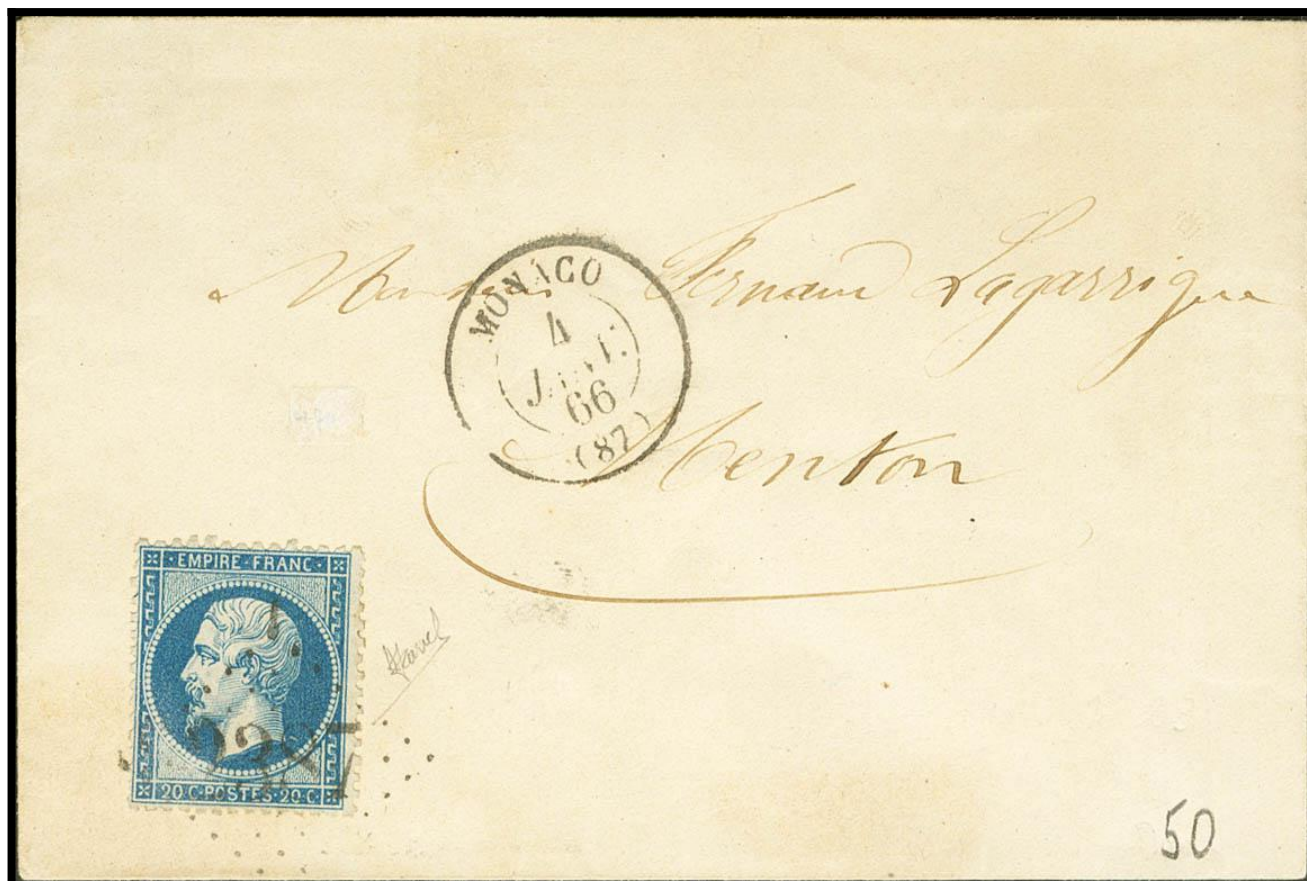 Monsieur Fernand Lagarrigue
MONACO
4
JANV.
66
(87)
Menton
EMPIRE FRANC
2387
20 C POSTES 20 C
50